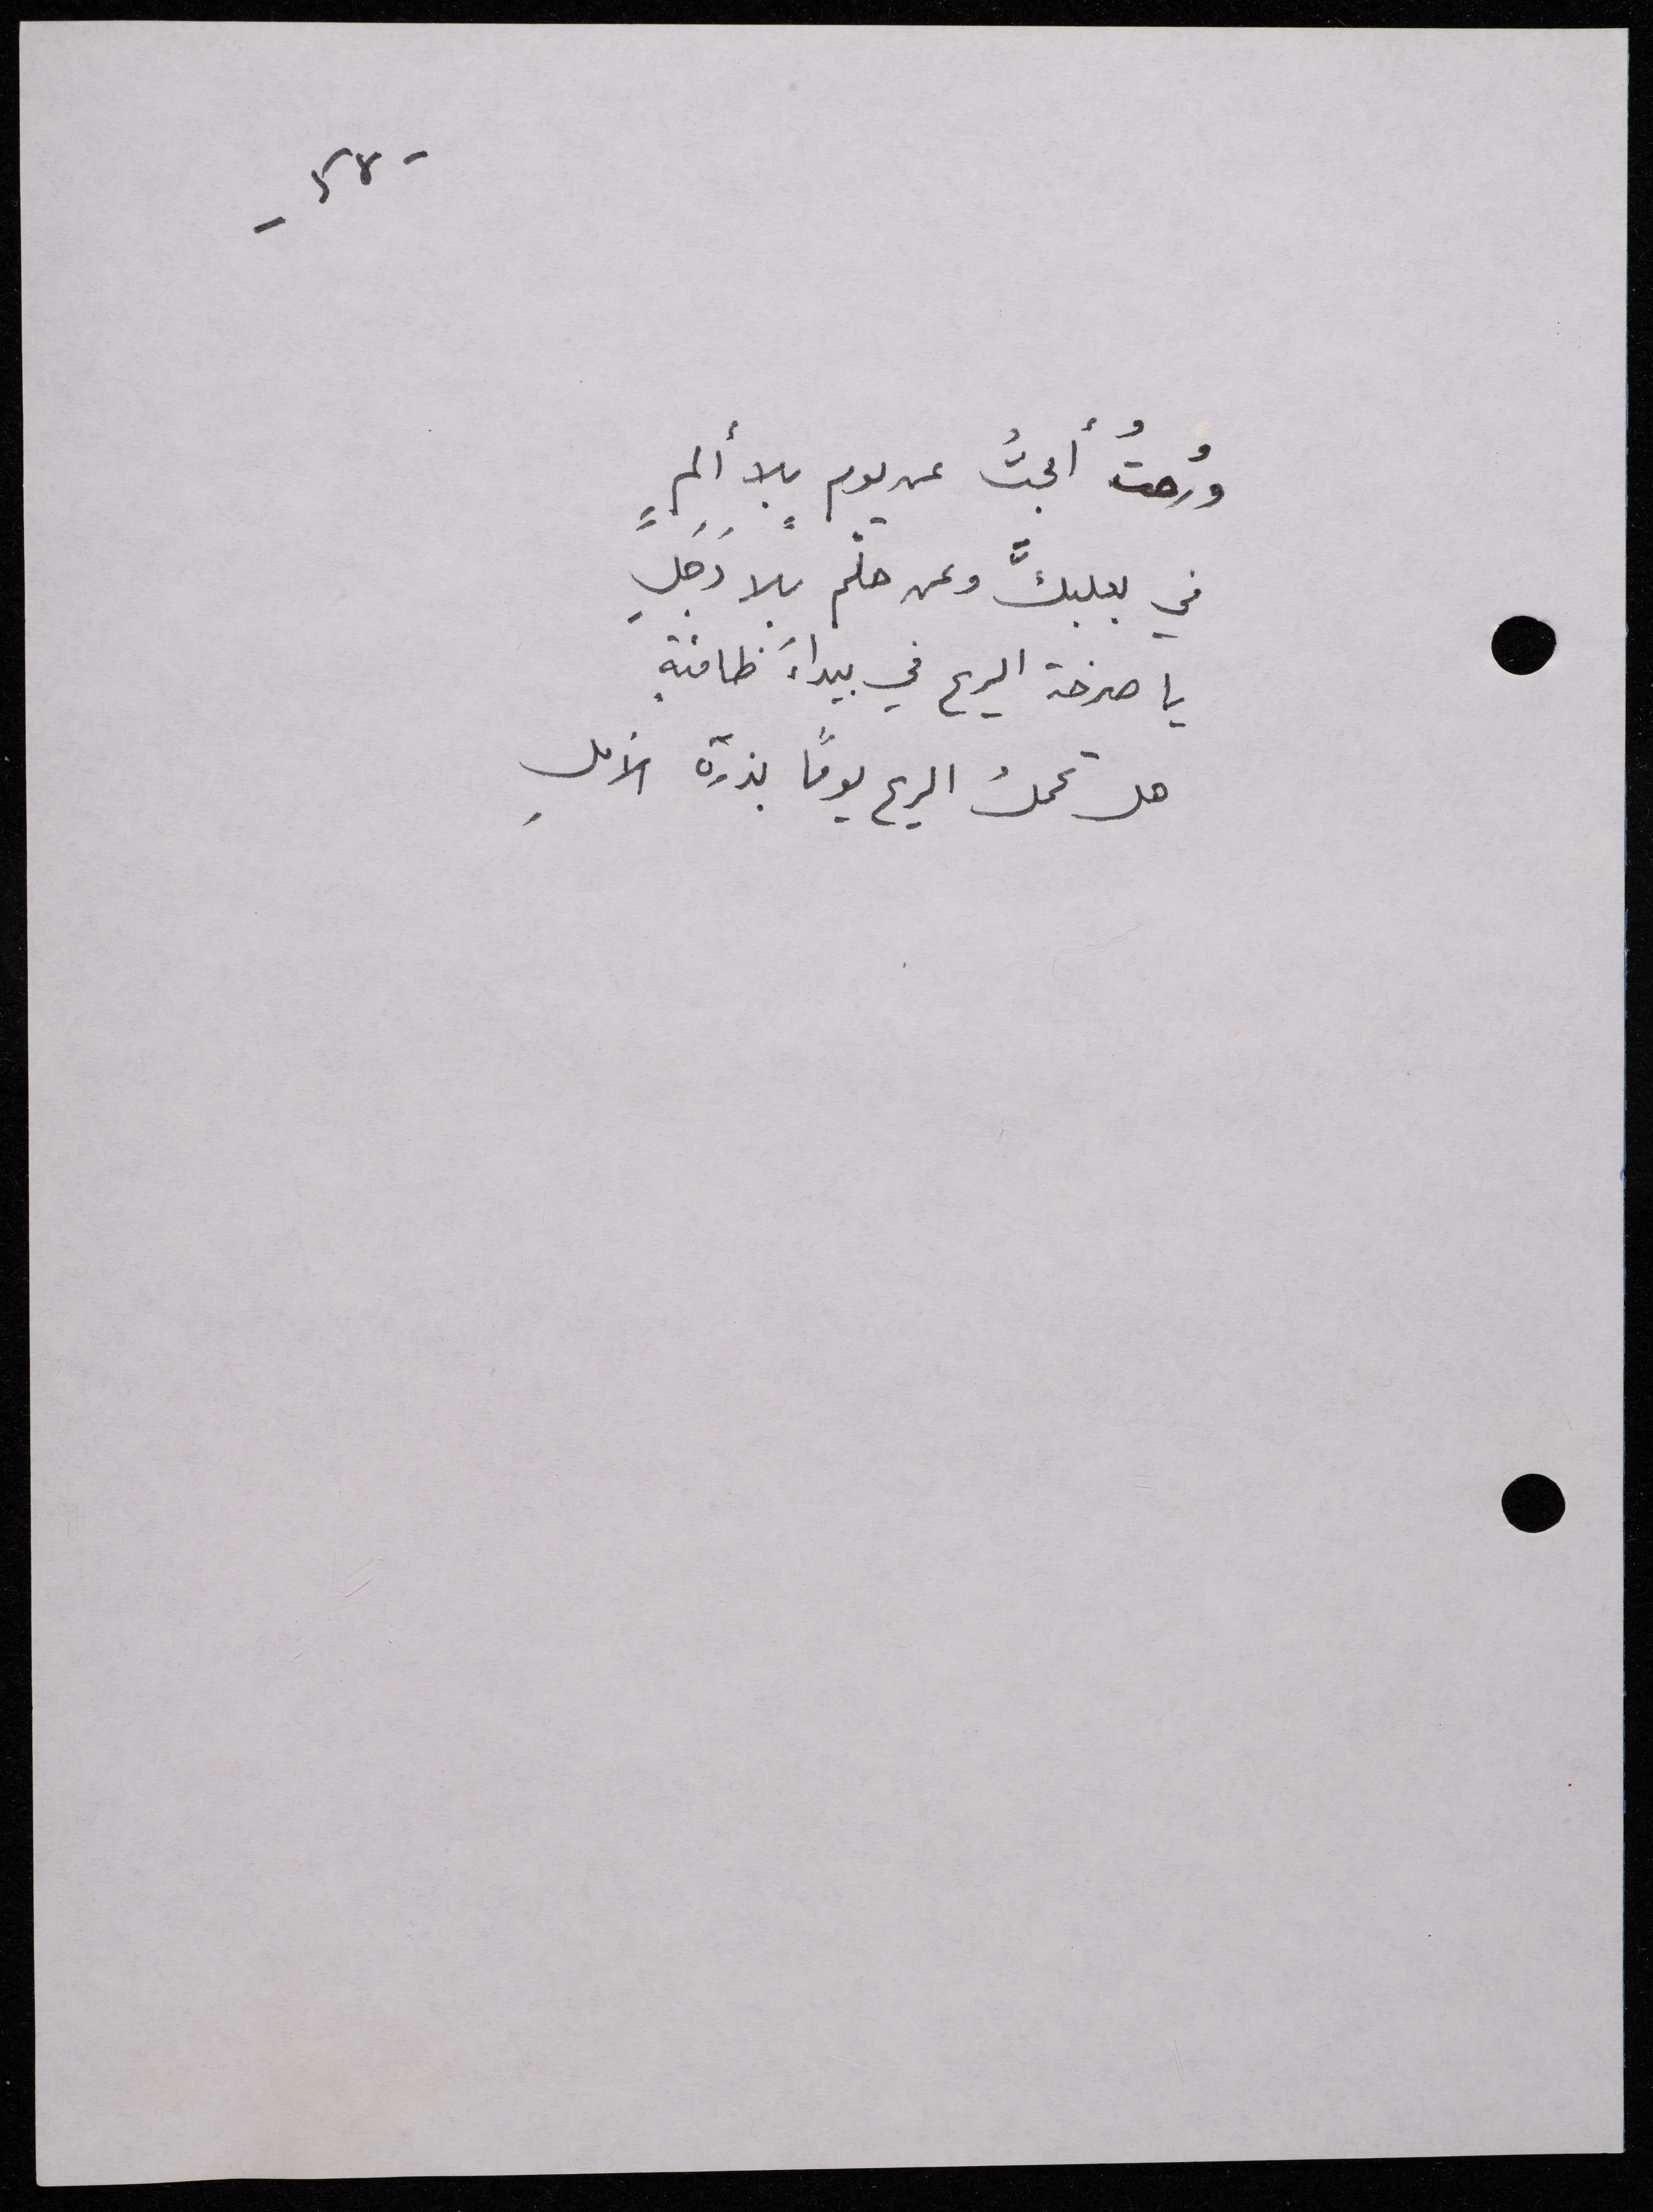 ورُحتُ أبحثُ عن يومٍ بلا ألمٍ
في بعلبكَّ وعن حلْمٍ بلا دَجَلِ
يا صرخة الريح في بيداءَ ظامئةٍ
هل تحملُ الريح يومًا بذرة الأملِ